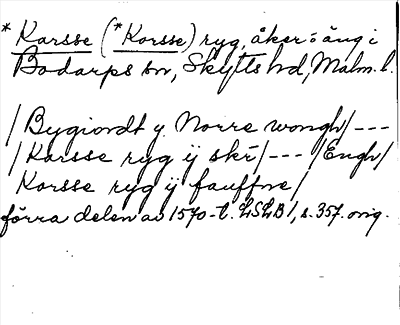 * Karsse (*Korsse) ryg, åker o. äng i
Bodarps sn, Skytts hd, Malm. l.
/Bygiordt y. Norre wongh/ ---
/Karsse ryg ÿ skr/ --- /Engh/
Korsse ryg ÿ fauffne/
förra delen av 1570-t. LSLB 1, s. 357. orig.